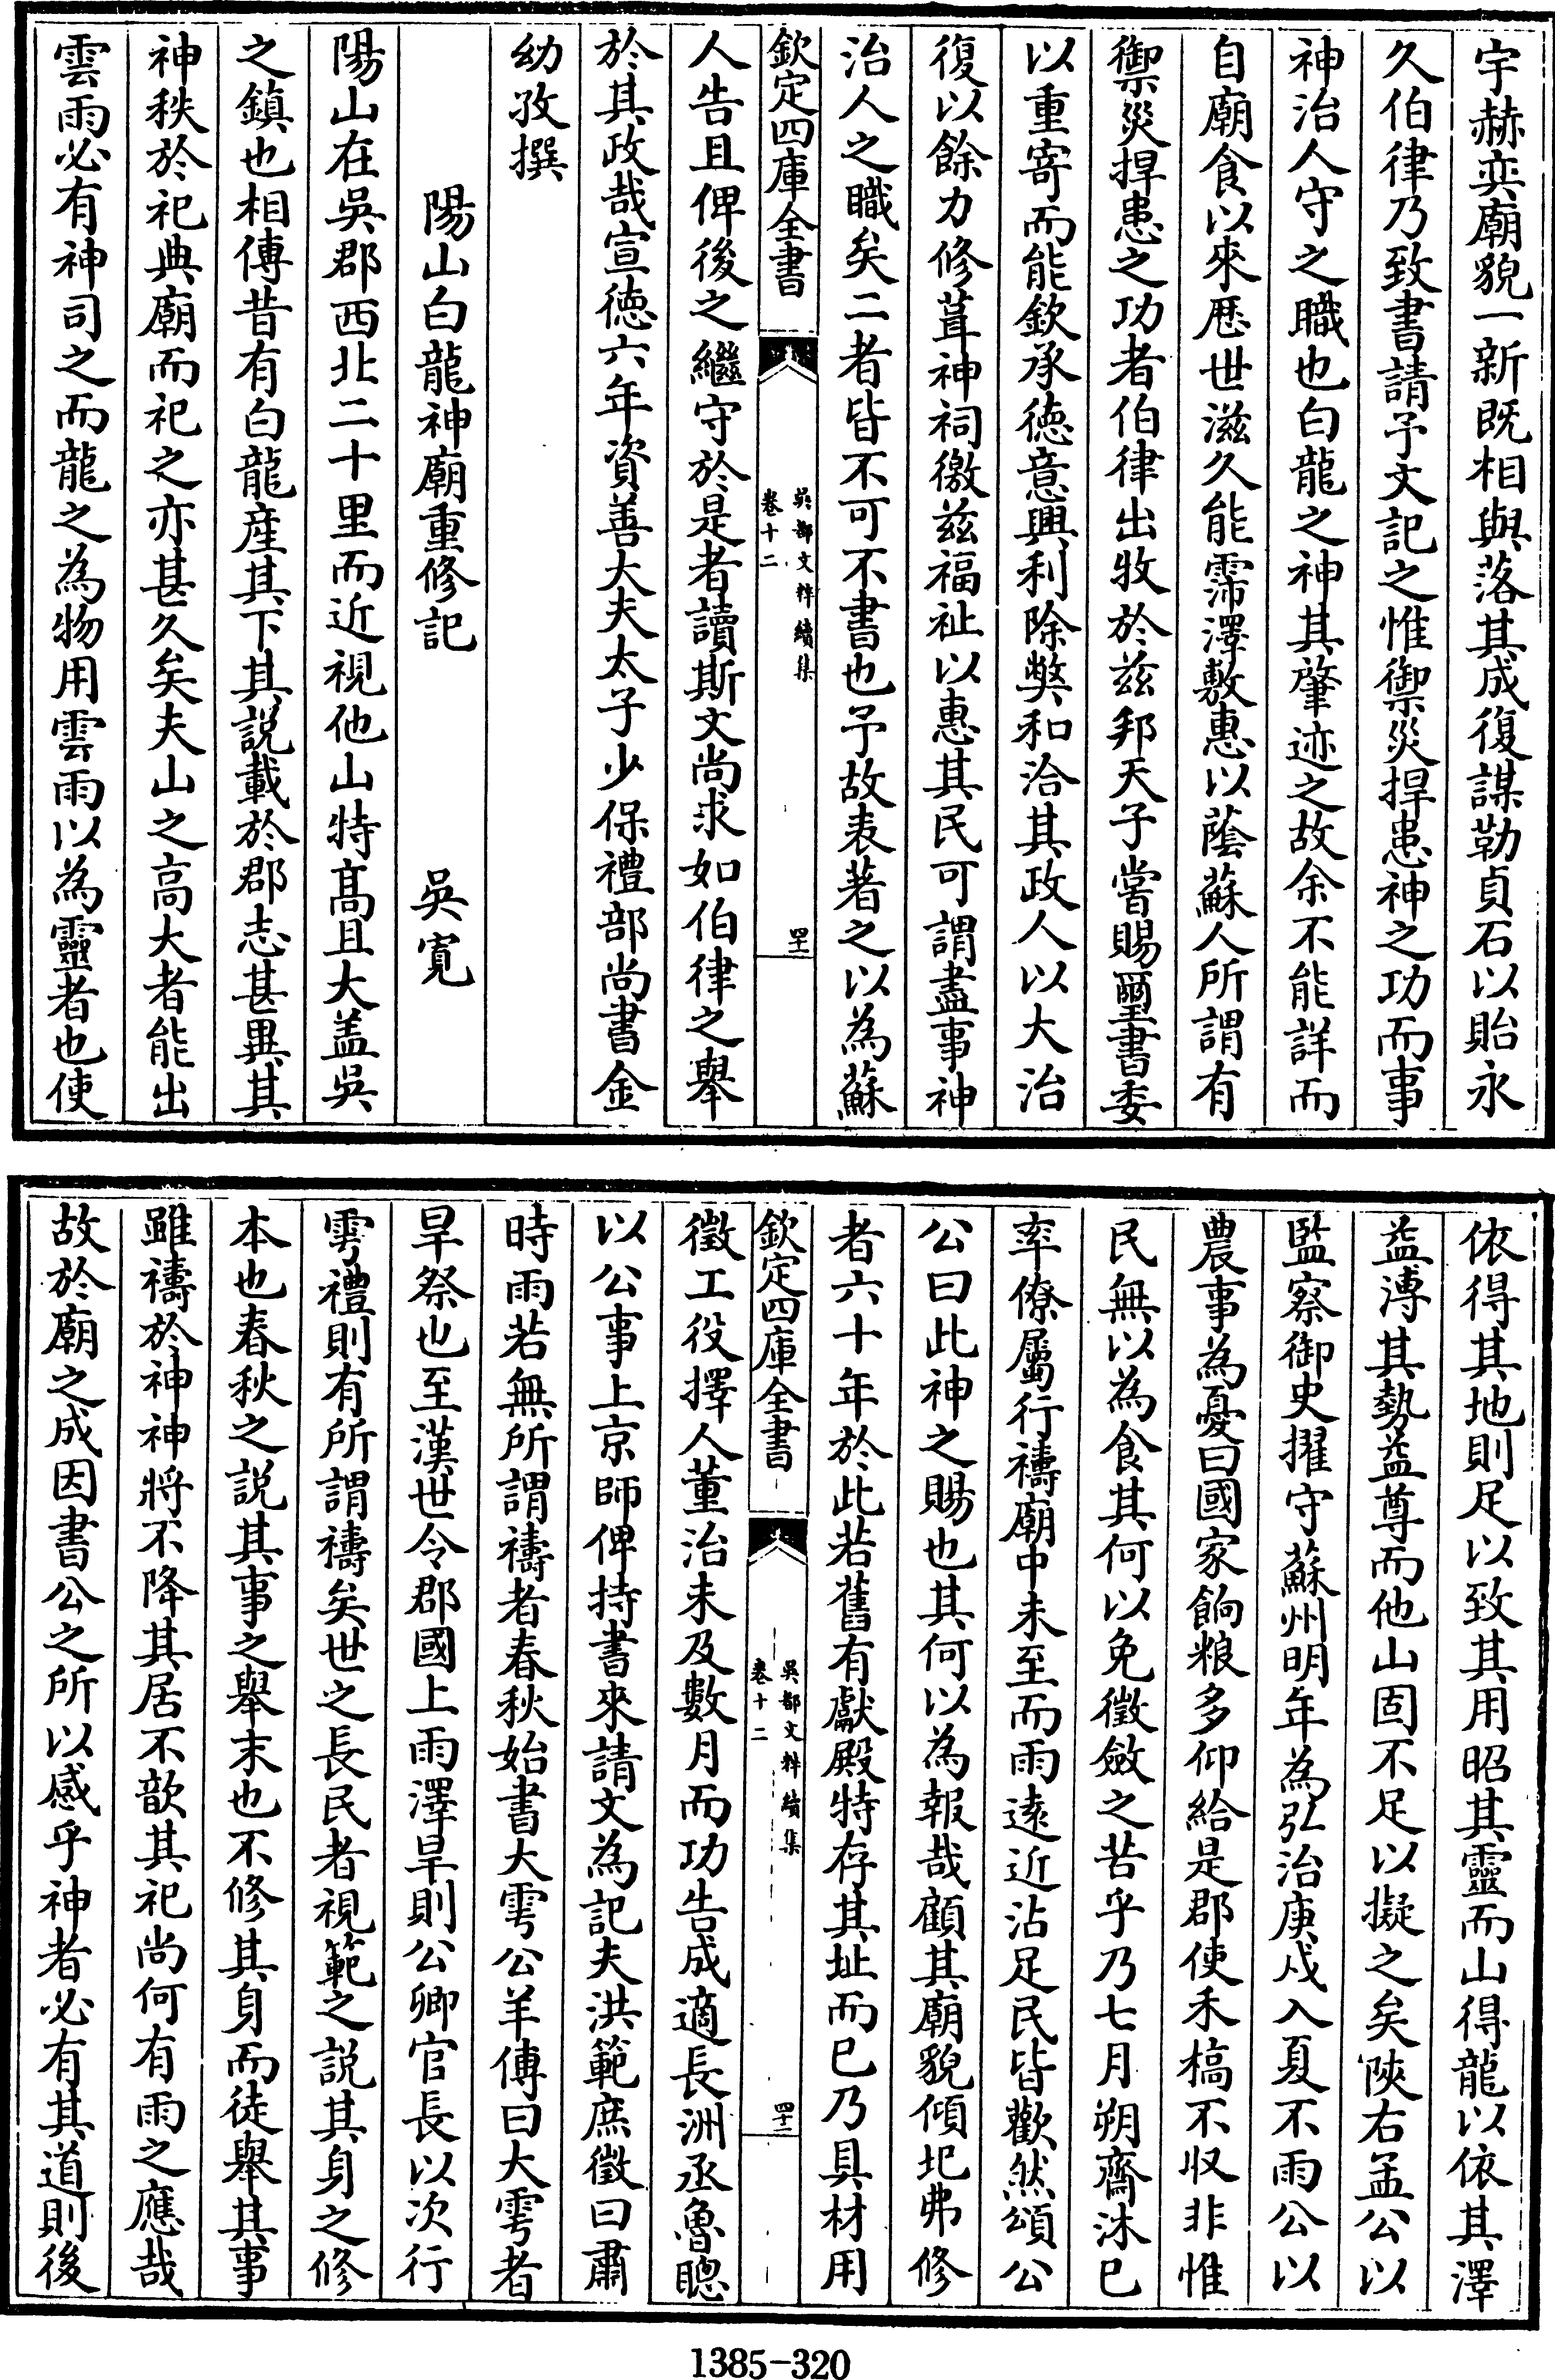 宇赫奕廟貌一新既相與落其成復謀勒貞石以貽永
久伯律乃致書請予文記之惟禦災捍患神之功而事
神治人守之職也白龍之神其肇迹之故余不能詳而
自廟食以來歴世滋久能霈澤敷惠以蔭蘇人所謂有
禦災捍患之功者伯律出牧於兹邦天子嘗賜璽書委
以重寄而能欽承徳意興利除弊和洽其政人以大治
復以餘力修葺神祠徼兹福祉以惠其民可謂盡事神
治人之職矣二者皆不可不書也予故表著之以為蘇
欽定四庫全書
吳都文粹續集
卷十二
四十
人告且俾後之繼守於是者讀斯文尚求如伯律之舉
於其政哉宣徳六年資善大夫太子少保禮部尚書金
幼孜撰
陽山白龍神廟重修記 吳寛
陽山在吳郡西北二十里而近視他山特髙且大盖吳
之鎮也相傳昔有白龍産其下其説載於郡志甚異其
神秩於祀典廟而祀之亦甚久矣夫山之高大者能出
雲雨必有神司之而龍之為物用雲雨以為靈者也使
依得其地則足以致其用昭其靈而山得龍以依其澤
益溥其勢益尊而他山固不足以擬之矣陜右孟公以
監察御史擢守蘇州明年為弘治庚戍入夏不雨公以
農事為憂曰國家餉粮多仰給是郡使禾槁不収非惟
民無以為食其何以免徵斂之苦乎乃七月朔齋沐已
率僚屬行禱廟中未至而雨逺近沾足民皆歡然頌公
公曰此神之賜也其何以為報哉顧其廟貌傾圯弗修
者六十年於此若舊有獻殿特存其址而已乃具材用
欽定四庫全書
吳都文粹續集
卷十二
四十一
徵工役擇人董治未及數月而功告成適長洲丞魯聰
以公事上京師俾持書來請文為記夫洪範庶徵曰肅
時雨若無所謂禱者春秋始書大雩公羊傳曰大雩者
旱祭也至漢世令郡國上雨澤旱則公卿官長以次行
雩禮則有所謂禱矣世之長民者視範之説其身之修
本也春秋之説其事之舉末也不修其身而徒舉其事
雖禱於神神將不降其居不歆其祀尚何有雨之應哉
故於廟之成因書公之所以感乎神者必有其道則後
1385-320